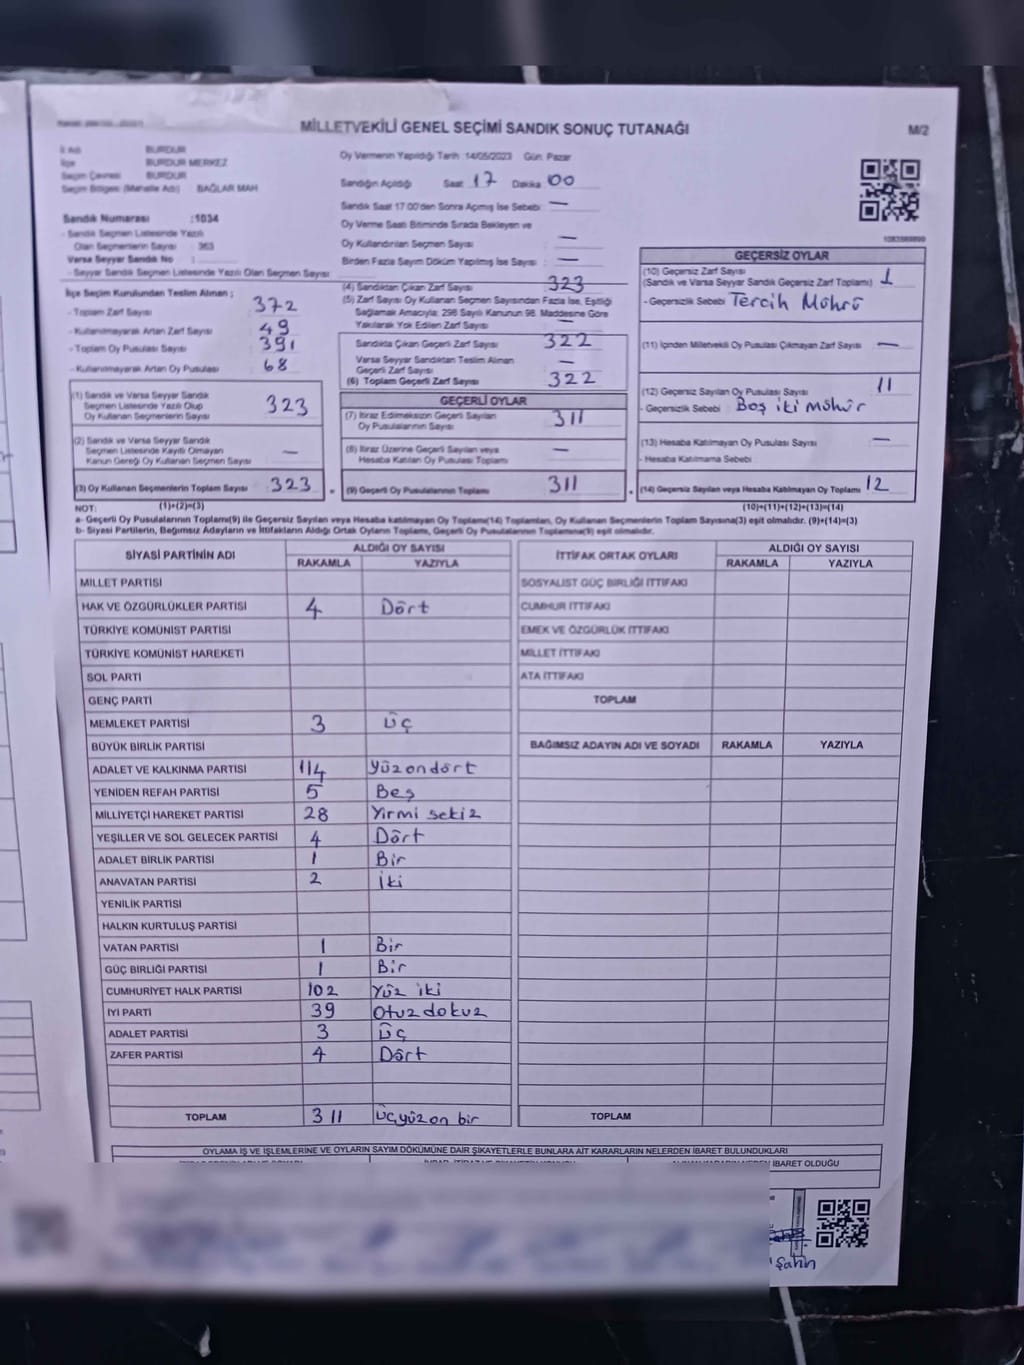 MİLLETVEKİLİ GENEL SEÇİMİ SANDIK SONUÇ TUTANAĞI
M/2
İl Adı BURDUR
İlçe BURDUR MERKEZ
Seçim Çevresi BURDUR
Seçim Bölgesi (Mahalle Adı) BAĞLAR MAH
Oy Vermenin Yapıldığı Tarih :14/05/2023 Gün: Pazar
Sandığın Açıldığı Saat 17 Dakika 00
Sandık Saat 17.00'den Sonra Açılmış İse Sebebi : —
Oy Verme Saati Bitiminde Sırada Bekleyen ve
Oy Kullandırılan Seçmen Sayısı : —
Birden Fazla Sayım Döküm Yapılmış İse Sayısı : —
Sandık Numarası :1034
- Sandık Seçmen Listesinde Yazılı
Olan Seçmenlerin Sayısı : 363
Varsa Seyyar Sandık No :
- Seyyar Sandık Seçmen Listesinde Yazılı Olan Seçmen Sayısı :
İlçe Seçim Kurulundan Teslim Alınan ;
- Toplam Zarf Sayısı : 372
- Kullanılmayarak Artan Zarf Sayısı : 49
- Toplam Oy Pusulası Sayısı : 391
- Kullanılmayarak Artan Oy Pusulası : 68
(1) Sandık ve Varsa Seyyar Sandık
Seçmen Listesinde Yazılı Olup
Oy Kullanan Seçmenlerin Sayısı 323
(2) Sandık ve Varsa Seyyar Sandık
Seçmen Listesinde Kayıtlı Olmayan
Kanun Gereği Oy Kullanan Seçmen Sayısı —
(3) Oy Kullanan Seçmenlerin Toplam Sayısı : 323
(4) Sandıktan Çıkan Zarf Sayısı : 323
(5) Zarf Sayısı Oy Kullanan Seçmen Sayısından Fazla İse, Eşitliği
Sağlamak Amacıyla; 298 Sayılı Kanunun 98. Maddesine Göre
Yakılarak Yok Edilen Zarf Sayısı : —
Sandıkta Çıkan Geçerli Zarf Sayısı : 322
Varsa Seyyar Sandıktan Teslim Alınan
Geçerli Zarf Sayısı : —
(6) Toplam Geçerli Zarf Sayısı : 322
GEÇERLİ OYLAR
(7) İtiraz Edilmeksizin Geçerli Sayılan
Oy Pusulalarının Sayısı : 311
(8) İtiraz Üzerine Geçerli Sayılan veya
Hesaba Katılan Oy Pusulası Toplamı : —
= (9) Geçerli Oy Pusulalarının Toplamı : 311
GEÇERSİZ OYLAR
(10) Geçersiz Zarf Sayısı
(Sandık ve Varsa Seyyar Sandık Geçersiz Zarf Toplamı) : 1
- Geçersizlik Sebebi : Tercih Mührü
(11) İçinden Milletvekili Oy Pusulası Çıkmayan Zarf Sayısı : —
(12) Geçersiz Sayılan Oy Pusulası Sayısı : 11
- Geçersizlik Sebebi : Boş iki mühür
(13) Hesaba Katılmayan Oy Pusulası Sayısı : —
- Hesaba Katılmama Sebebi
+ (14) Geçersiz Sayılan veya Hesaba Katılmayan Oy Toplamı : 12
NOT: (1)+(2)=(3) (10)+(11)+(12)+(13)=(14)
a- Geçerli Oy Pusulalarının Toplamı(9) ile Geçersiz Sayılan veya Hesaba katılmayan Oy Toplamı(14) Toplamları, Oy Kullanan Seçmenlerin Toplam Sayısına(3) eşit olmalıdır. (9)+(14)=(3)
b- Siyasi Partilerin, Bağımsız Adayların ve İttifakların Aldığı Ortak Oyların Toplamı, Geçerli Oy Pusulalarının Toplamına(9) eşit olmalıdır.
SİYASİ PARTİNİN ADI ALDIĞI OY SAYISI
RAKAMLA YAZIYLA
MİLLET PARTİSİ
HAK VE ÖZGÜRLÜKLER PARTİSİ 4 Dört
TÜRKİYE KOMÜNİST PARTİSİ
TÜRKİYE KOMÜNİST HAREKETİ
SOL PARTİ
GENÇ PARTİ
MEMLEKET PARTİSİ 3 üç
BÜYÜK BİRLİK PARTİSİ
ADALET VE KALKINMA PARTİSİ 114 yüzondört
YENİDEN REFAH PARTİSİ 5 Beş
MİLLİYETÇİ HAREKET PARTİSİ 28 Yirmi sekiz
YEŞİLLER VE SOL GELECEK PARTİSİ 4 Dört
ADALET BİRLİK PARTİSİ 1 Bir
ANAVATAN PARTİSİ 2 İki
YENİLİK PARTİSİ
HALKIN KURTULUŞ PARTİSİ
VATAN PARTİSİ 1 Bir
GÜÇ BİRLİĞİ PARTİSİ 1 Bir
CUMHURİYET HALK PARTİSİ 102 Yüz iki
İYİ PARTİ 39 Otuz dokuz
ADALET PARTİSİ 3 üç
ZAFER PARTİSİ 4 Dört
TOPLAM 311 Üçyüzon bir
İTTİFAK ORTAK OYLARI ALDIĞI OY SAYISI
RAKAMLA YAZIYLA
SOSYALİST GÜÇ BİRLİĞİ İTTİFAKI
CUMHUR İTTİFAKI
EMEK VE ÖZGÜRLÜK İTTİFAKI
MİLLET İTTİFAKI
ATA İTTİFAKI
TOPLAM
BAĞIMSIZ ADAYIN ADI VE SOYADI RAKAMLA YAZIYLA
TOPLAM
OYLAMA İŞ VE İŞLEMLERİNE VE OYLARIN SAYIM DÖKÜMÜNE DAİR ŞİKAYETLERLE BUNLARA AİT KARARLARIN NELERDEN İBARET BULUNDUKLARI
İBARET OLDUĞU
Şahin